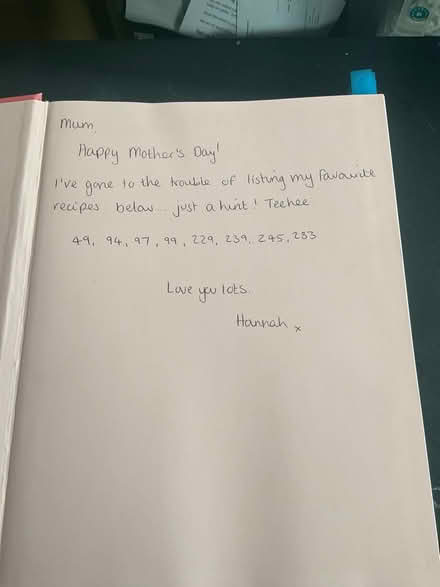 Mum,
Happy Mother's Day!
I've gone to the trouble of listing my favourite
recipes below... just a hint! Teehee
49, 94, 97, 99, 229, 239, 245, 253
Love you lots.
Hannah x